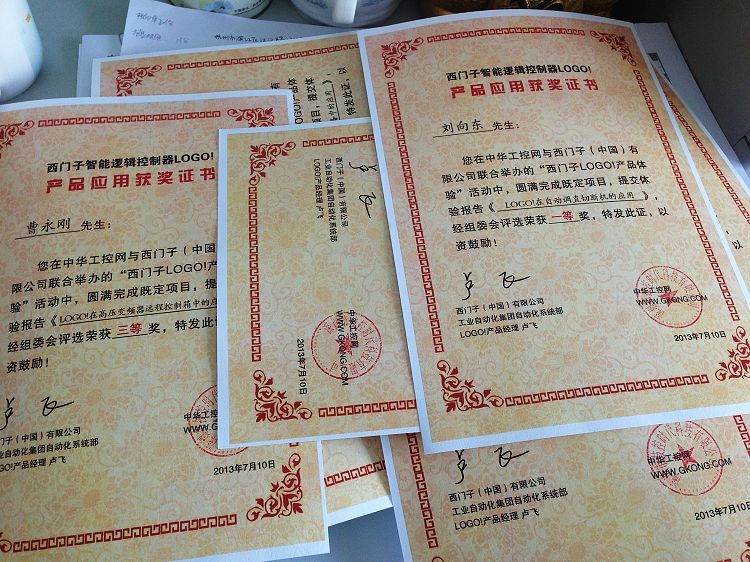 西门子智能逻辑控制器LOGO!
产品应用获奖证书
刘向东 先生:
您在中华工控网与西门子(中国)有
限公司联合举办的“西门子LOGO!产品体
验”活动中,圆满完成既定项目,提交体
验报告《LOGO!在自动调直切断机的应用》
经组委会评选荣获 一等 奖,特发此证,以
资鼓励!
西门子(中国)有限公司
工业自动化集团自动化系统部
LOGO!产品经理 卢飞
中华工控网
WWW.GKONG.COM
2013年7月10日
西门子智能逻辑控制器LOGO!
产品应用获奖证书
曹永刚 先生:
您在中华工控网与西门子(中国)
限公司联合举办的“西门子LOGO!产
验”活动中,圆满完成既定项目,提
验报告《LOGO!在高压变频器远程控制箱中的应
经组委会评选荣获 三等 奖,特发此证
资鼓励!
西门子(中国)有限公司
工业自动化集团自动化系统部
LOGO!产品经理 卢飞
中华工控网
WWW.GKONG.COM
2013年7月10日
西门子(中国)有限公司
工业自动化集团自动化系统部
LOGO!产品经理 卢飞
中华工控网
WWW.GKONG.COM
2013年7月10日
有
产品体
提交体
中的应用》
特发此证,以
西门子(中国)有限公司
工业自动化集团自动化系统部
LOGO!产品经理 卢飞
中华工控网
WWW.GKONG.COM
2013年7月10日